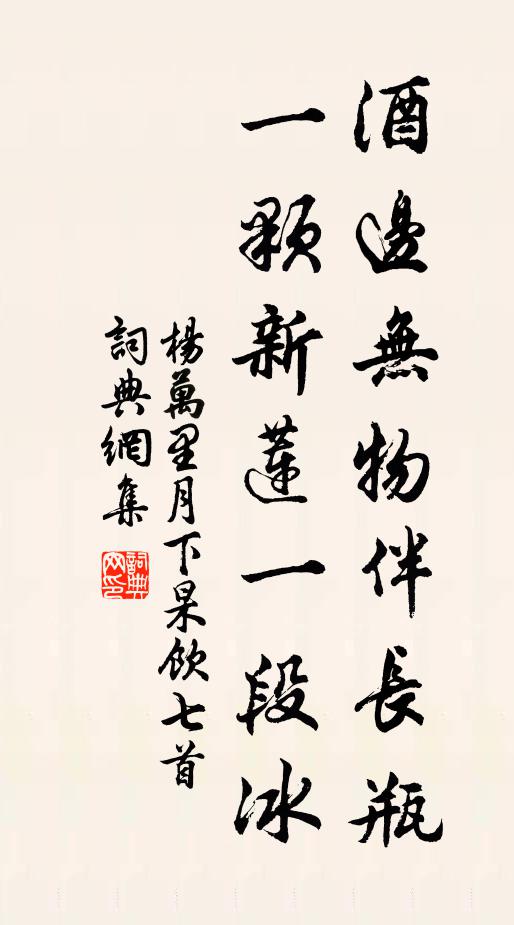 酒邊無物伴長瓶
一顆新蓮一段冰
楊萬里月下杲飲七首
詞典網集
詞典网印